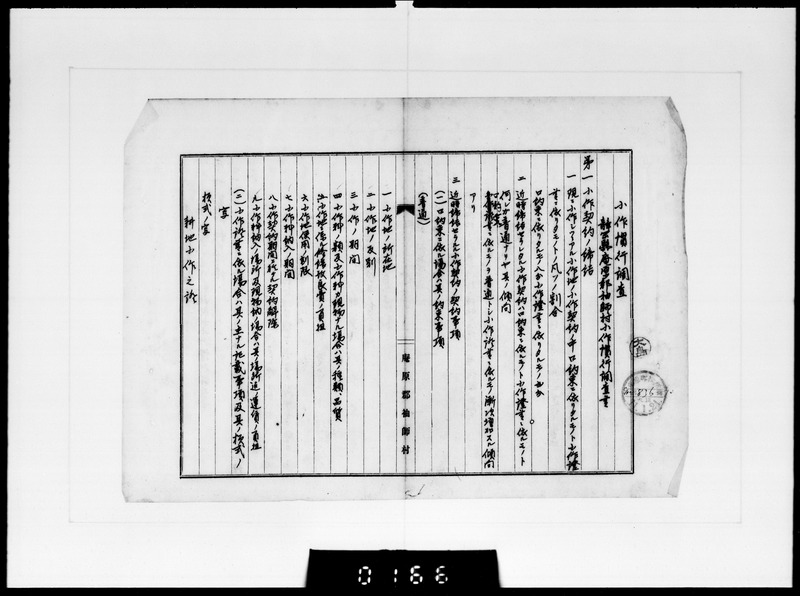 小作慣行調査
静岡縣庵原郡袖師村小作慣行調査書
第一 小作契約ノ締結
一 現ニ小作シアル小作地ノ小作契約ノ中口約束ニ依リタルモノト小作證
書ニ依リタルモノトノ凡ソノ割合
口約束ニ依リタルモノ八分小作證書ニ依リタルモノ二分
二 近時締結セラルル小作契約ハ口約束ニ依ルモノト小作證書ニ依ルモノト
何レガ普通ナリヤ其ノ傾向
口約束ニ依ルモノヲ普通トシ小作証書ニ依ルモノ漸次増加スル傾向
アリ
三 近時締結セラルル小作契約ノ契約事項
(一)口約束ニ依ル場合ハ其ノ約束事項
(普通)
一 小作地ノ所在地
二 小作地ノ反別
三 小作ノ期間
四 小作料ノ額及小作料ガ現物ナル場合ハ其ノ種類、品質
五 小作地ノ修繕改良費ノ負担
六 小作地使用ノ制限
七 小作料納入ノ期間
八 小作契約期間ニ於ケル契約解除
九 小作料納入ノ場所及現物納ノ場合ハ其ノ場所迄ノ運賃ノ負担
(二)小作証書ニ依ル場合ハ其ノ主ナル記載事項及其ノ様式ノ
寫
様式ノ寫
耕地小作之証
庵原郡袖師村
0166